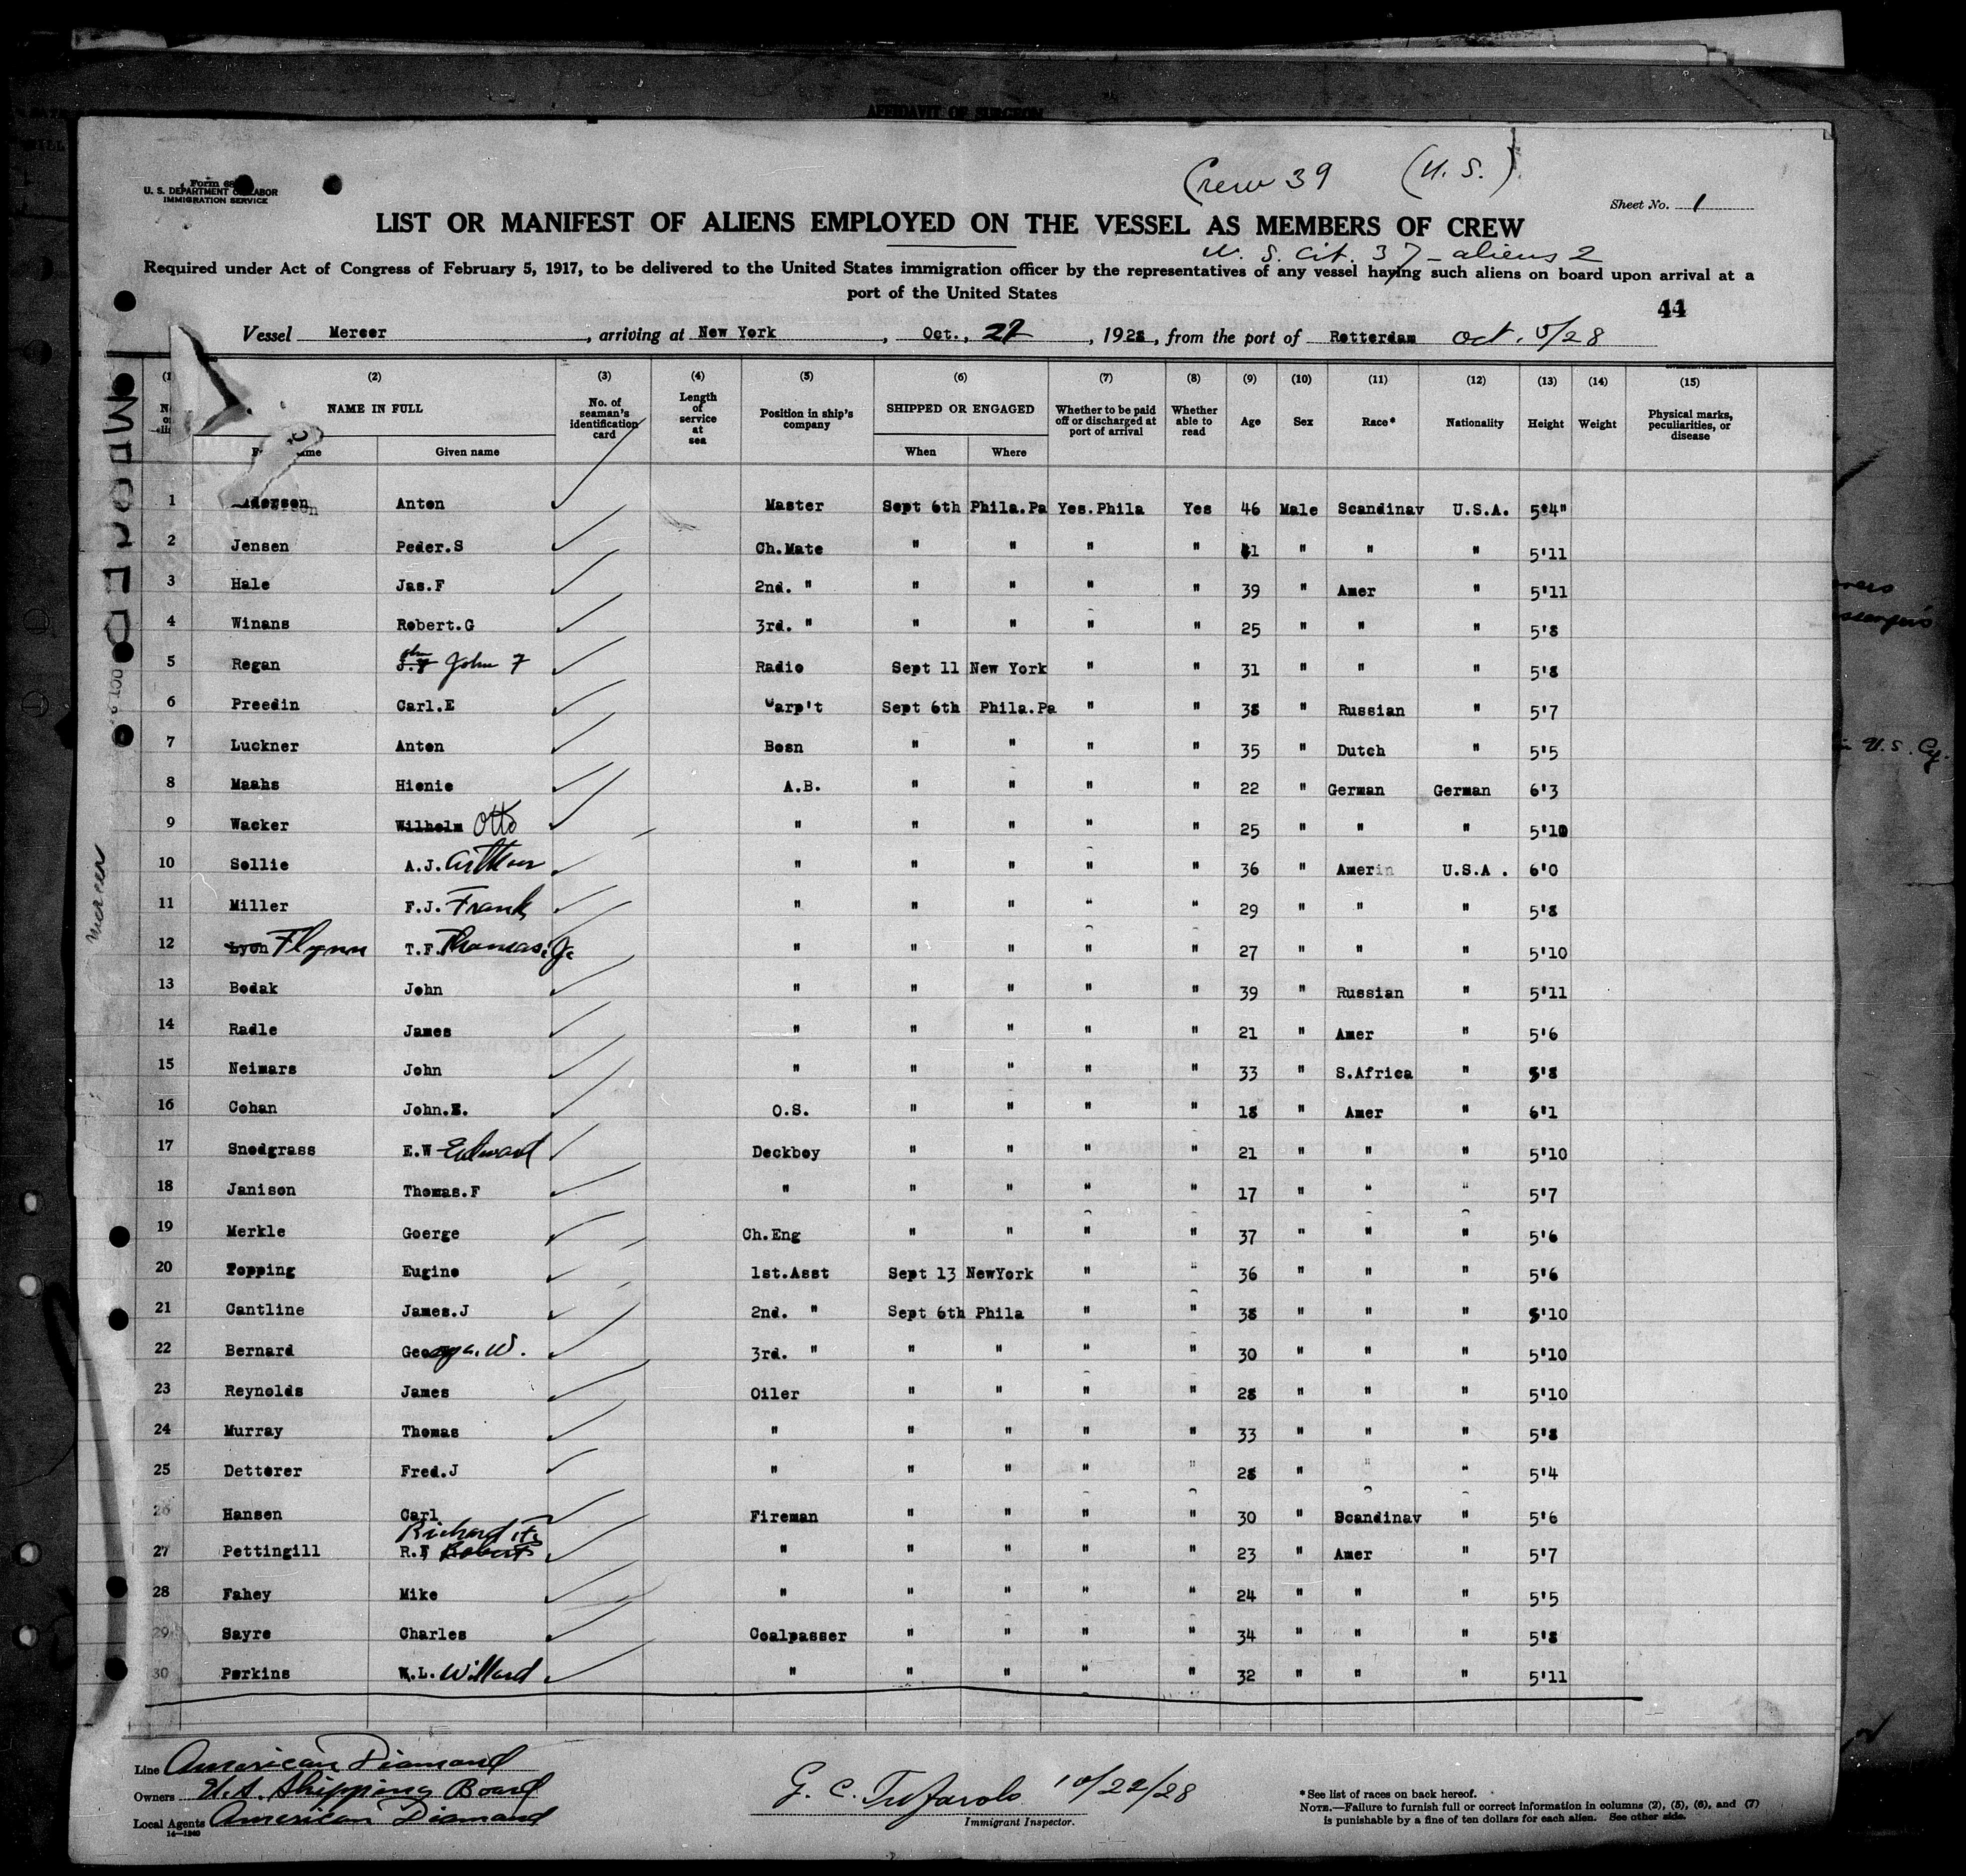 AFFIDAVIT OF SURGEON
Crew 39 (U. S.)
U. S. DEPARTMENT OF LABOR
IMMIGRATION SERVICE
Sheet No. 1
LIST OR MANIFEST OF ALIENS EMPLOYED ON THE VESSEL AS MEMBERS OF CREW
U. S. Cit. 37 - aliens 2
Required under Act of Congress of February 5, 1917, to be delivered to the United States immigration officer by the representatives of any vessel having such aliens on board upon arrival at a
port of the United States
44
Vessel Mercer, arriving at New York, Oct., 22, 1928, from the port of Rotterdam Oct. 5/28
(2) (3) (4) (5) (6) (7) (8) (9) (10) (11) (12) (13) (14) (15)
NAME IN FULL No. of seaman's identification card Length of service at sea Position in ship's company SHIPPED OR ENGAGED Whether to be paid off or discharged at port of arrival Whether able to read Age Sex Race* Nationality Height Weight Physical marks, peculiarities, or disease
Given name When Where
1 Anton Master Sept 6th Phila.Pa Yes.Phila Yes 46 Male Scandinav U.S.A. 5'4"
2 Jensen Peder.S Ch.Mate " " " " 41 " " " 5'11
3 Hale Jas.F 2nd. " " " " " 39 " Amer " 5'11
4 Winans Robert.G 3rd. " " " " " 25 " " " 5'8
5 Regan John F Radio Sept 11 New York " " 31 " " " 5'8
6 Preedin Carl.E Carp't Sept 6th Phila.Pa " " 38 " Russian " 5'7
7 Luckner Anton Bosn " " " " 35 " Dutch " 5'5
8 Maahs Hienie A.B. " " " " 22 " German German 6'3
9 Wacker Wilhelm Otto " " " " " 25 " " " 5'10
10 Sollie A.J. Arthur " " " " " 36 " Amerin U.S.A . 6'0
11 Miller F.J. Frank " " " " " 29 " " " 5'8
12 Lyon Flynn T.F. Thomas, Jr. " " " " " 27 " " " 5'10
13 Bodak John " " " " " 39 " Russian " 5'11
14 Radle James " " " " " 21 " Amer " 5'6
15 Neimars John " " " " " 33 " S.Africa " 5'8
16 Cohan John.E. O.S. " " " " 18 " Amer " 6'1
17 Snodgrass E.W Edward Deckboy " " " " 21 " " " 5'10
18 Janison Thomas.F " " " " " 17 " " " 5'7
19 Merkle Goerge Ch.Eng " " " " 37 " " " 5'6
20 Topping Eugine 1st.Asst Sept 13 NewYork " " 36 " " " 5'6
21 Cantline James.J 2nd. " Sept 6th Phila " " 38 " " " 5'10
22 Bernard George. W. 3rd. " " " " " 30 " " " 5'10
23 Reynolds James Oiler " " " " 28 " " " 5'10
24 Murray Thomas " " " " " 33 " " " 5'8
25 Detterer Fred.J " " " " " 28 " " " 5'4
26 Hansen Carl Fireman " " " " 30 " Scandinav " 5'6
Richard H.
27 Pettingill R.F Robert " " " " " 23 " Amer " 5'7
28 Fahey Mike " " " " " 24 " " " 5'5
29 Sayre Charles Coalpasser " " " " 34 " " " 5'8
30 Perkins W.L. Willard " " " " " 32 " " " 5'11
Line American Diamond
Owners U.S. Shipping Board
Local Agents American Diamond
14—1240
10/22/28
Immigrant Inspector.
* See list of races on back hereof.
NOTE.—Failure to furnish full or correct information in columns (2), (5), (6), and (7)
is punishable by a fine of ten dollars for each alien. See other side.